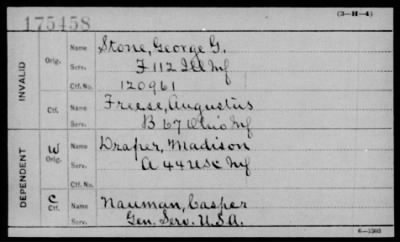 175458
(3—H—4)
INVALID
Orig.
Name Stone, George G.
Serv. F 112 Ill Inf
Ctf. No. 120961
Ctf.
Name Freese, Augustus
Serv. B 67 Ohio Inf
DEPENDENT
W
Orig.
Name Draper, Madison
Serv. A 44 USC Inf
Ctf. No.
C
Ctf.
Name Nauman, Casper
Serv. Gen. Serv. U.S.A.
6—1303